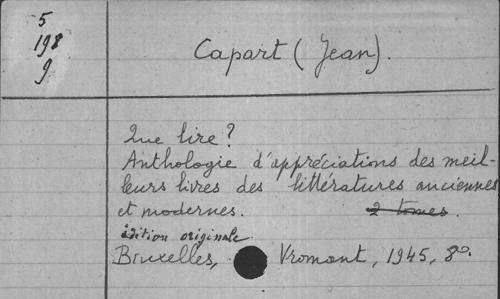 5
198
9
Capart (Jean).
Que lire?
Anthologie d'appréciations des meil-
leurs livres des littératures anciennes
et modernes. 2 tomes.
édition originale
Bruxelles, Vromant, 1945, 8º.